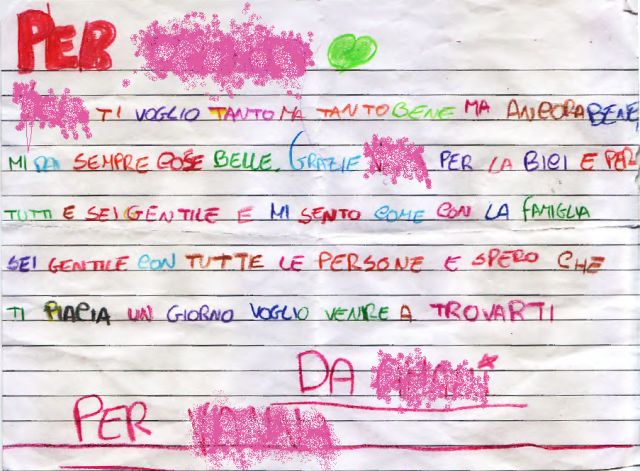 PER
TI VOGLIO TANTO MA TANTO BENE MA ANCORA BENE
MI DAI SEMPRE COSE BELLE. GRAZIE PER LA BICI E PER
TUTTI E SEI GENTILE E MI SENTO COME CON LA FAMIGLIA
SEI GENTILE CON TUTTE LE PERSONE E SPERO CHE
TI PIACIA UN GIORNO VOGLIO VENIRE A TROVARTI
DA
PER